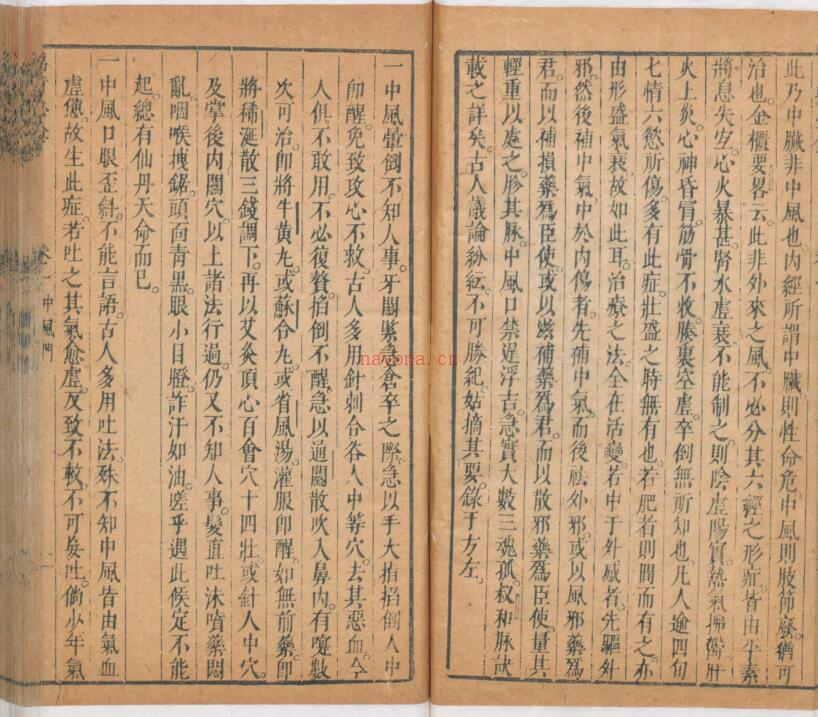 此乃中臟非中風也內經所謂中臟則性命危中風則肢節廢猶可
治也金櫃要畧云此非外來之風不必分其六經之形症皆由平素
將息失宜心火暴甚腎水虛衰不能制之則陰虛陽實熱氣拂鬱肝
火上炎心神昏冐筋骨不收腠裏空虛卒倒無所知也凡人逾四旬
七情六慾所傷多有此症壯盛之時無有也若肥者則間而有之亦
由形盛氣衰故如此耳治療之法全在活變若中于外感者先驅外
邪然後補中氣中於內傷者先補中氣而後祛外邪或以風邪藥爲
君而以補損藥爲臣使或以滋補藥爲君而以散邪藥爲臣使量其
輕重以處之胗其脉中風口禁遲浮古急實大數三魂孤叔和脉訣
載之詳矣古人議論紛紜不可勝紀姑摘其要錄于方左
一中風暈倒不知人事牙關緊急倉卒之際急以手大指掐倒人中
卽醒免致攻心不救古人多用針刺合谷人中等穴去其惡血今
人俱不敢用不必復贅掐倒不醒急以通關散吹入鼻內有嚏數
次可治卽將牛黃丸或蘇合丸或省風湯灌服卽醒如無前藥卽
將稀涎散三錢調下再以艾灸頂心百會穴十四壯或針人中穴
及掌後內關穴以上諸法行過仍又不知人事髮直吐沫噴藥悶
亂咽喉拽鋸頭面青黑眼小目瞪詐汗如油嗟乎遇此候定不能
起總有仙丹天命而已
一中風口眼歪斜不能言語古人多用吐法殊不知中風皆由氣血
虛憊故生此症若吐之其氣愈虛反致不救不可妄吐倘少年氣
卷一 中風門
nayona.cn